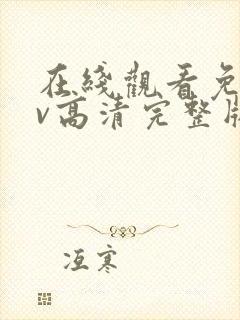 在綫觀看免
v高清完整版
冱寒